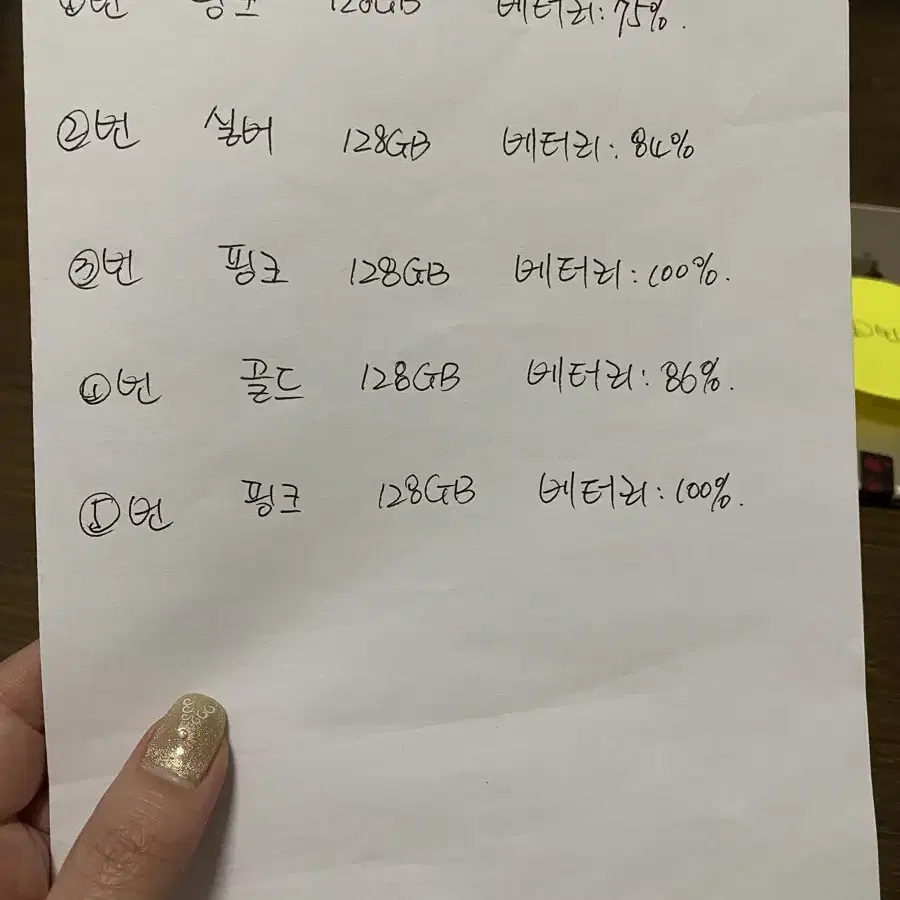 ①번 핑크 128GB 베터리: 75%.
②번 실버 128GB 베터리: 84%
③번 핑크 128GB 베터리: 100%.
④번 골드 128GB 베터리: 86%.
⑤번 핑크 128GB 베터리: 100%.